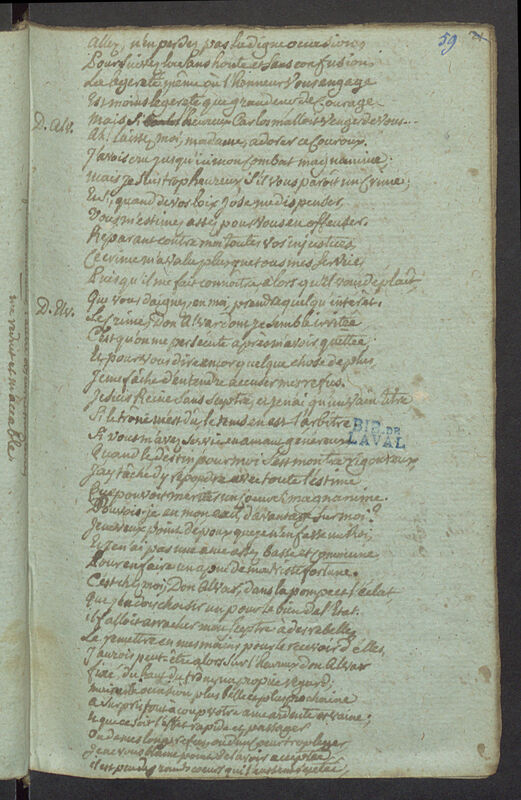 59
Allez, n'en perdez pas la digne occasion,
Poursuivez les sans honte et sans confusion
La legereté même où l'honneur vous engage
Est moins legereté que grandeur de courage
Mais l'heureux Carlos malloit venger de vous...
D. Alv.
Ah! laissez, moi, madame, adorer ce couroux.
J'avois cru jusqu'ici mon combat magnanime;
mais je suis trop heureux s'il vous paroit un crime;
Et si, quand de vos loix j'ose me dispenser,
Vous m'estimez assez pour vous en offenser.
Reparant contre moi toutes vos injustices
Ce crime m'a valu plus que tous mes services
Puisqu'il me fait connoitre alors qu'il vous deplait
Que vous daignez en moi prendre quelqu'interêt.
D. Elv.
Le crime, Don Alvar dont je semble irritée
C'est qu'on me persecute après m'avoir quittée:
Et pour vous dire encor quelque chose de plus
Je me fâche d'entendre accuser mes refus.
Je suis Reine sans sceptre et je n'ai qu'un vain titre
Si le trône m'est dû le tems en est l'arbitre
Si vous m'avez servie en amant genereux
Quand le destin pour moi s'est montré rigoureux
J'ay taché d'y repondre avec toute l'estime
Que pouvoit meriter un coeur si magnanime
Pouvois-je en mon exil, davantage sur moi?
Je ne veux point d'epoux que je n'en fasse un Roi,
Et je n'ai pas une ame assez basse et commune
Pour en faire un apui de ma triste fortune.
C'est chez moi, Don Alvar, dans la pompe et l'éclat
Que j'en dois choisir un pour le bien de l'Etat.
Il falloit arracher mon sceptre à des rebelles
Le remettre en mes mains pour le recevoir d'elles
J'aurois peut être alors sur l'heureux don Alvar
fixé du haut du trône un propice regard:
mais une ocasion plus belle et plus prochaine
a surpris tout à coup votre ame ardente et vaine;
Et que ce soit l'effet rapide et passager
Ou de mes longs refus, ou d'un coeur trop leger
Je ne vous blame point de l'avoir acceptée
BIB. DE
LAVAL